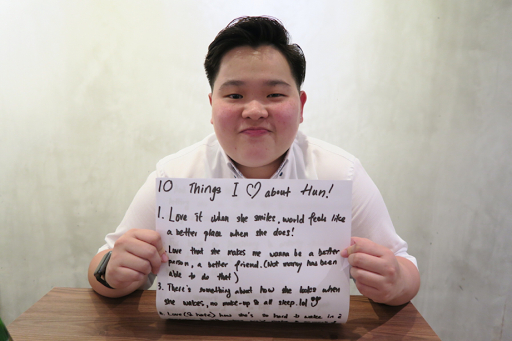 10 Things I ♡ about Hun!
1. Love it when she smiles, world feels like
a better place when she does!
Love that she makes me wanna be a better
person, a better friend. (Not many has been
able to do that)
3. There's something about how she looks when
she wakes, no make-up & all sleep. lol
Love (& hate) how she's so hard to